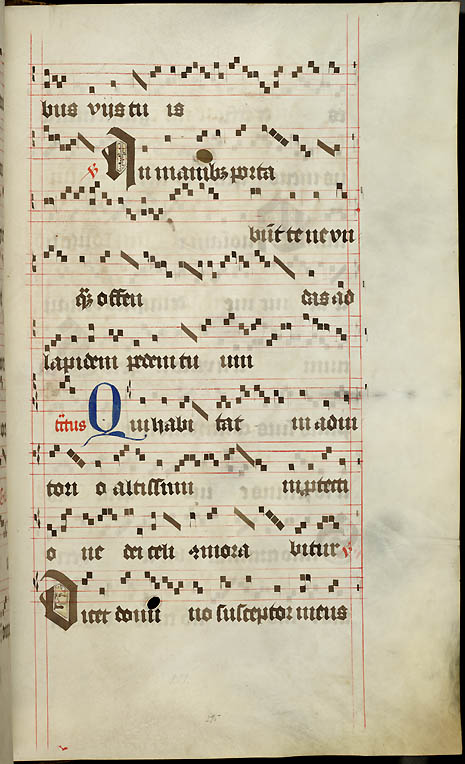 bus vijs tu is
v In manibz porta
būt te ne vn
qz offen das ad
lapidem pedem tu um
tctus Qui habi tat in adiu
tori o altissimi in ptecti
o ne dei celi 9mora bitur v
Dicet domi no susceptor meus